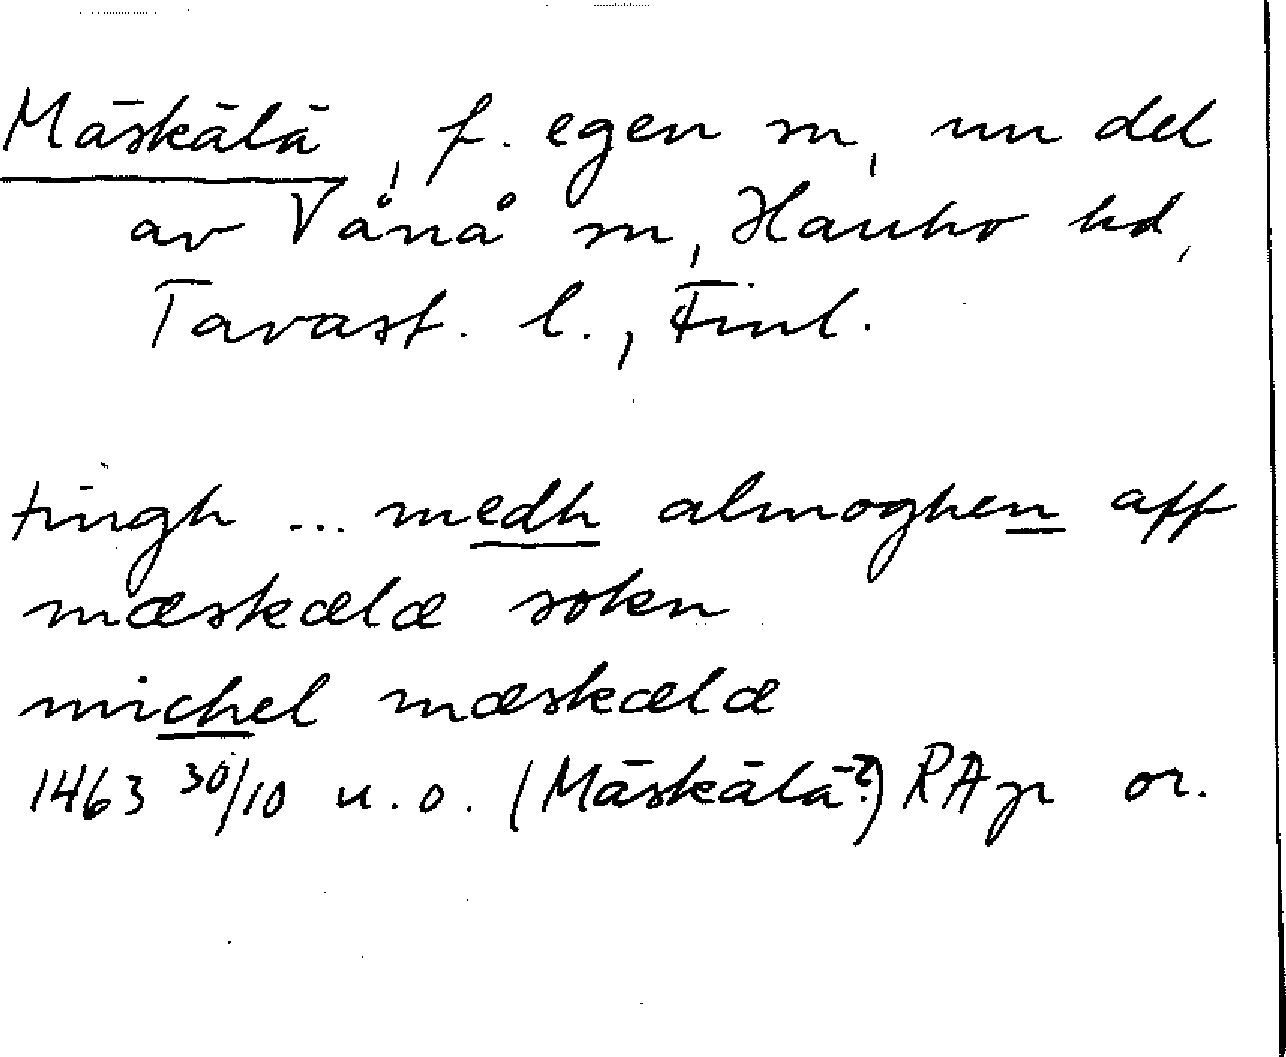 Mäskälä, f. egen sn, nu del
av Vånå sn, Hauho hd,
Tavast. l., Finl.
tingh ... medh almoghen aff
mæskælæ sokn
michel mæskælæ
1463 30/10 u.o. (Mäskälä?) RAp or.